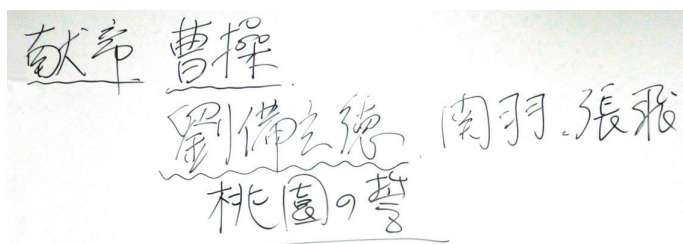 献帝 曹操
劉備玄徳、関羽、張飛
桃園の誓